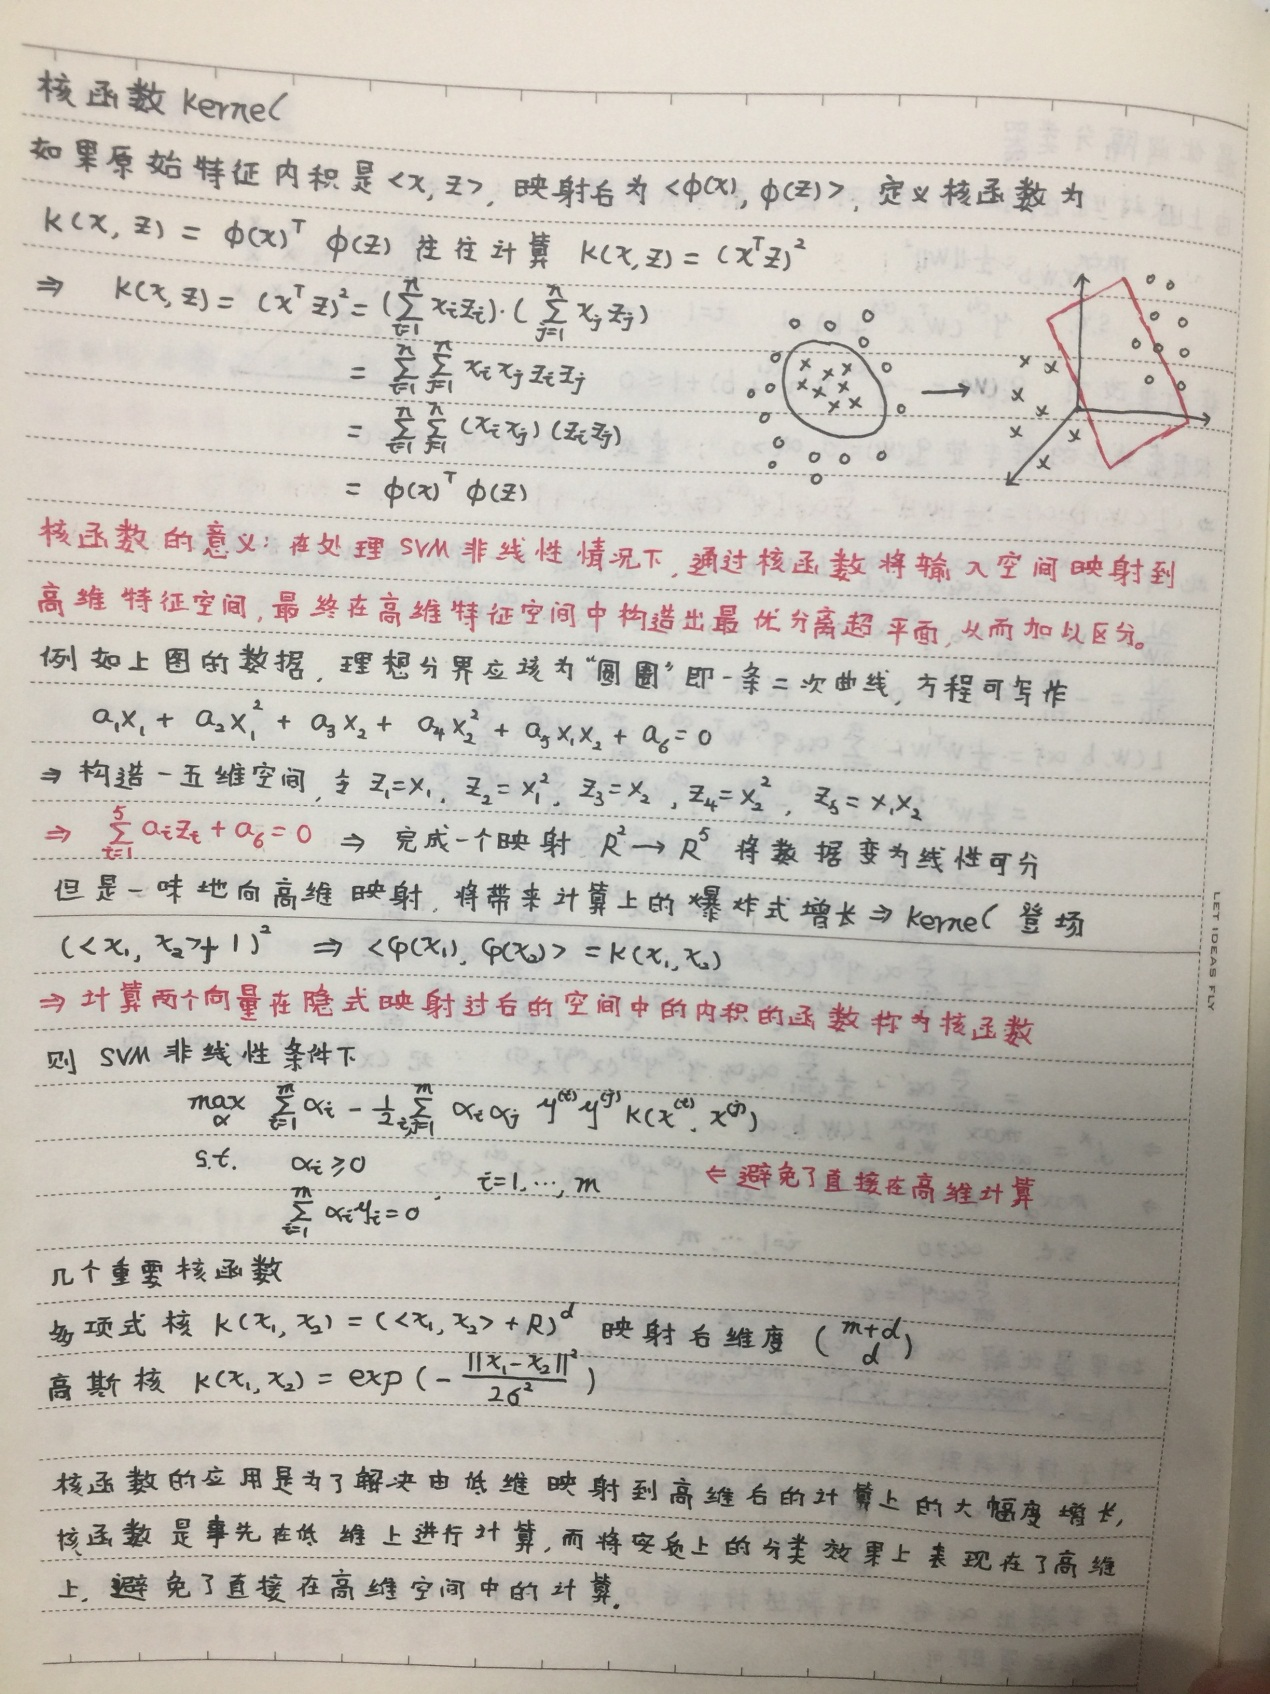 核函数 kernel
如果原始特征内积是<x, z>, 映射后为<φ(x), φ(z)>, 定义核函数为
K(x, z) = φ(x)ᵀ φ(z) 往往计算 K(x, z) = (xᵀz)²
⇒ K(x, z) = (xᵀz)² = (∑ⁿᵢ₌₁ xᵢzᵢ)·(∑ⁿⱼ₌₁ xⱼzⱼ)
= ∑ⁿᵢ₌₁ ∑ⁿⱼ₌₁ xᵢxⱼzᵢzⱼ
= ∑ⁿᵢ₌₁ ∑ⁿⱼ₌₁ (xᵢxⱼ)(zᵢzⱼ)
= φ(x)ᵀ φ(z)
核函数的意义: 在处理SVM非线性情况下, 通过核函数将输入空间映射到
高维特征空间, 最终在高维特征空间中构造出最优分离超平面, 从而加以区分。
例如上图的数据, 理想分界应该为“圆圈”即一条二次曲线, 方程可写作
a₁X₁ + a₂X₁² + a₃X₂ + a₄X₂² + a₅X₁X₂ + a₆ = 0
⇒ 构造一五维空间, 令 Z₁=X₁, Z₂=X₁², Z₃=X₂, Z₄=X₂², Z₅=X₁X₂
⇒ ∑⁵ᵢ₌₁ aᵢZᵢ + a₆ = 0 ⇒ 完成一个映射 R² → R⁵ 将数据变为线性可分
但是一味地向高维映射, 将带来计算上的爆炸式增长 ⇒ kernel 登场
(<x₁, x₂>+1)² ⇒ <φ(x₁), φ(x₂)> = K(x₁, x₂)
⇒ 计算两个向量在隐式映射过后的空间中的内积的函数称为核函数
则 SVM 非线性条件下
max α ∑ᵐᵢ₌₁ αᵢ - 1/2 ∑ᵐᵢ,ⱼ₌₁ αᵢαⱼ y⁽ⁱ⁾y⁽ʲ⁾K(x⁽ⁱ⁾, x⁽ʲ⁾)
s.t. αᵢ ≥ 0
, i=1, ..., m ⇐ 避免了直接在高维计算
∑ᵐᵢ₌₁ αᵢyᵢ = 0
几个重要核函数
多项式核 K(x₁, x₂) = (<x₁, x₂> + R)ᵈ 映射后维度 (m+d d)
高斯核 K(x₁, x₂) = exp(- ||x₁-x₂||² / 2σ²)
核函数的应用是为了解决由低维映射到高维后的计算上的大幅度增长,
核函数是事先在低维上进行计算, 而将实质上的分类效果上表现在了高维
上, 避免了直接在高维空间中的计算.
LET IDEAS FLY